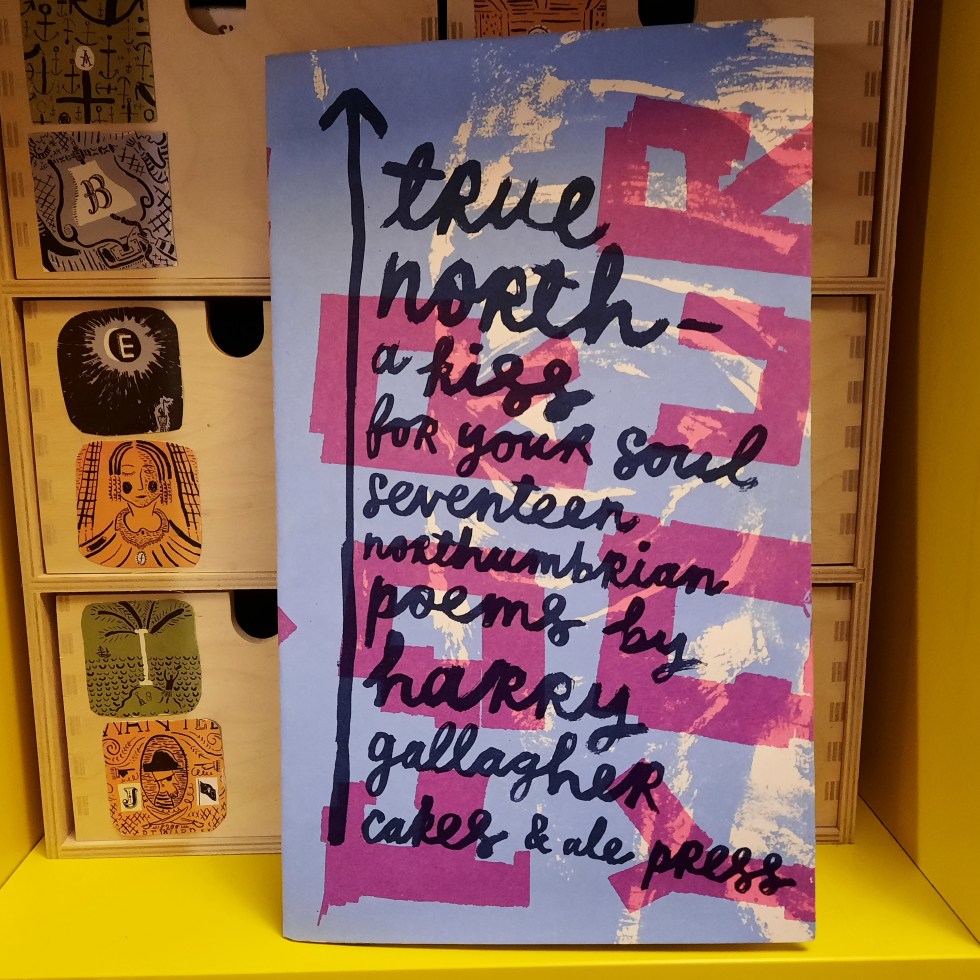 A
B
E
WANTED
J
true
north –
a kiss
for your soul
seventeen
northumbrian
poems by
harry
gallagher
cakes & ale press